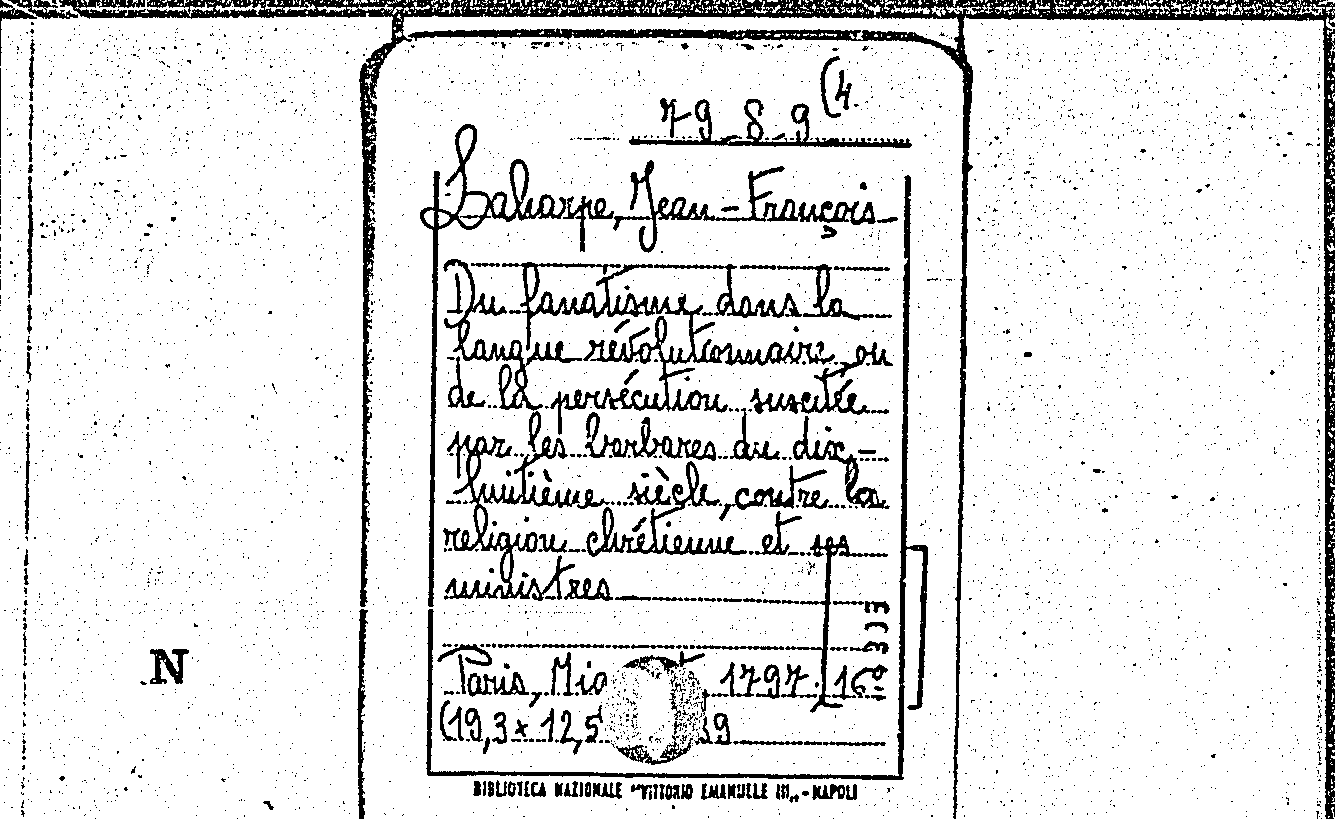 79-8-9(4.
Laharpe, Jean-François
Du fanatisme dans la
langue révolutionnaire ou
de la persécution suscitée
par les barbares du dix-
huitième siècle, contre la
religion chrétienne et ses
ministres
Paris, 1797. 16º
(19,3 x 12,5
N
BIBLIOTECA NAZIONALE "VITTORIO EMANUELE III" - NAPOLI